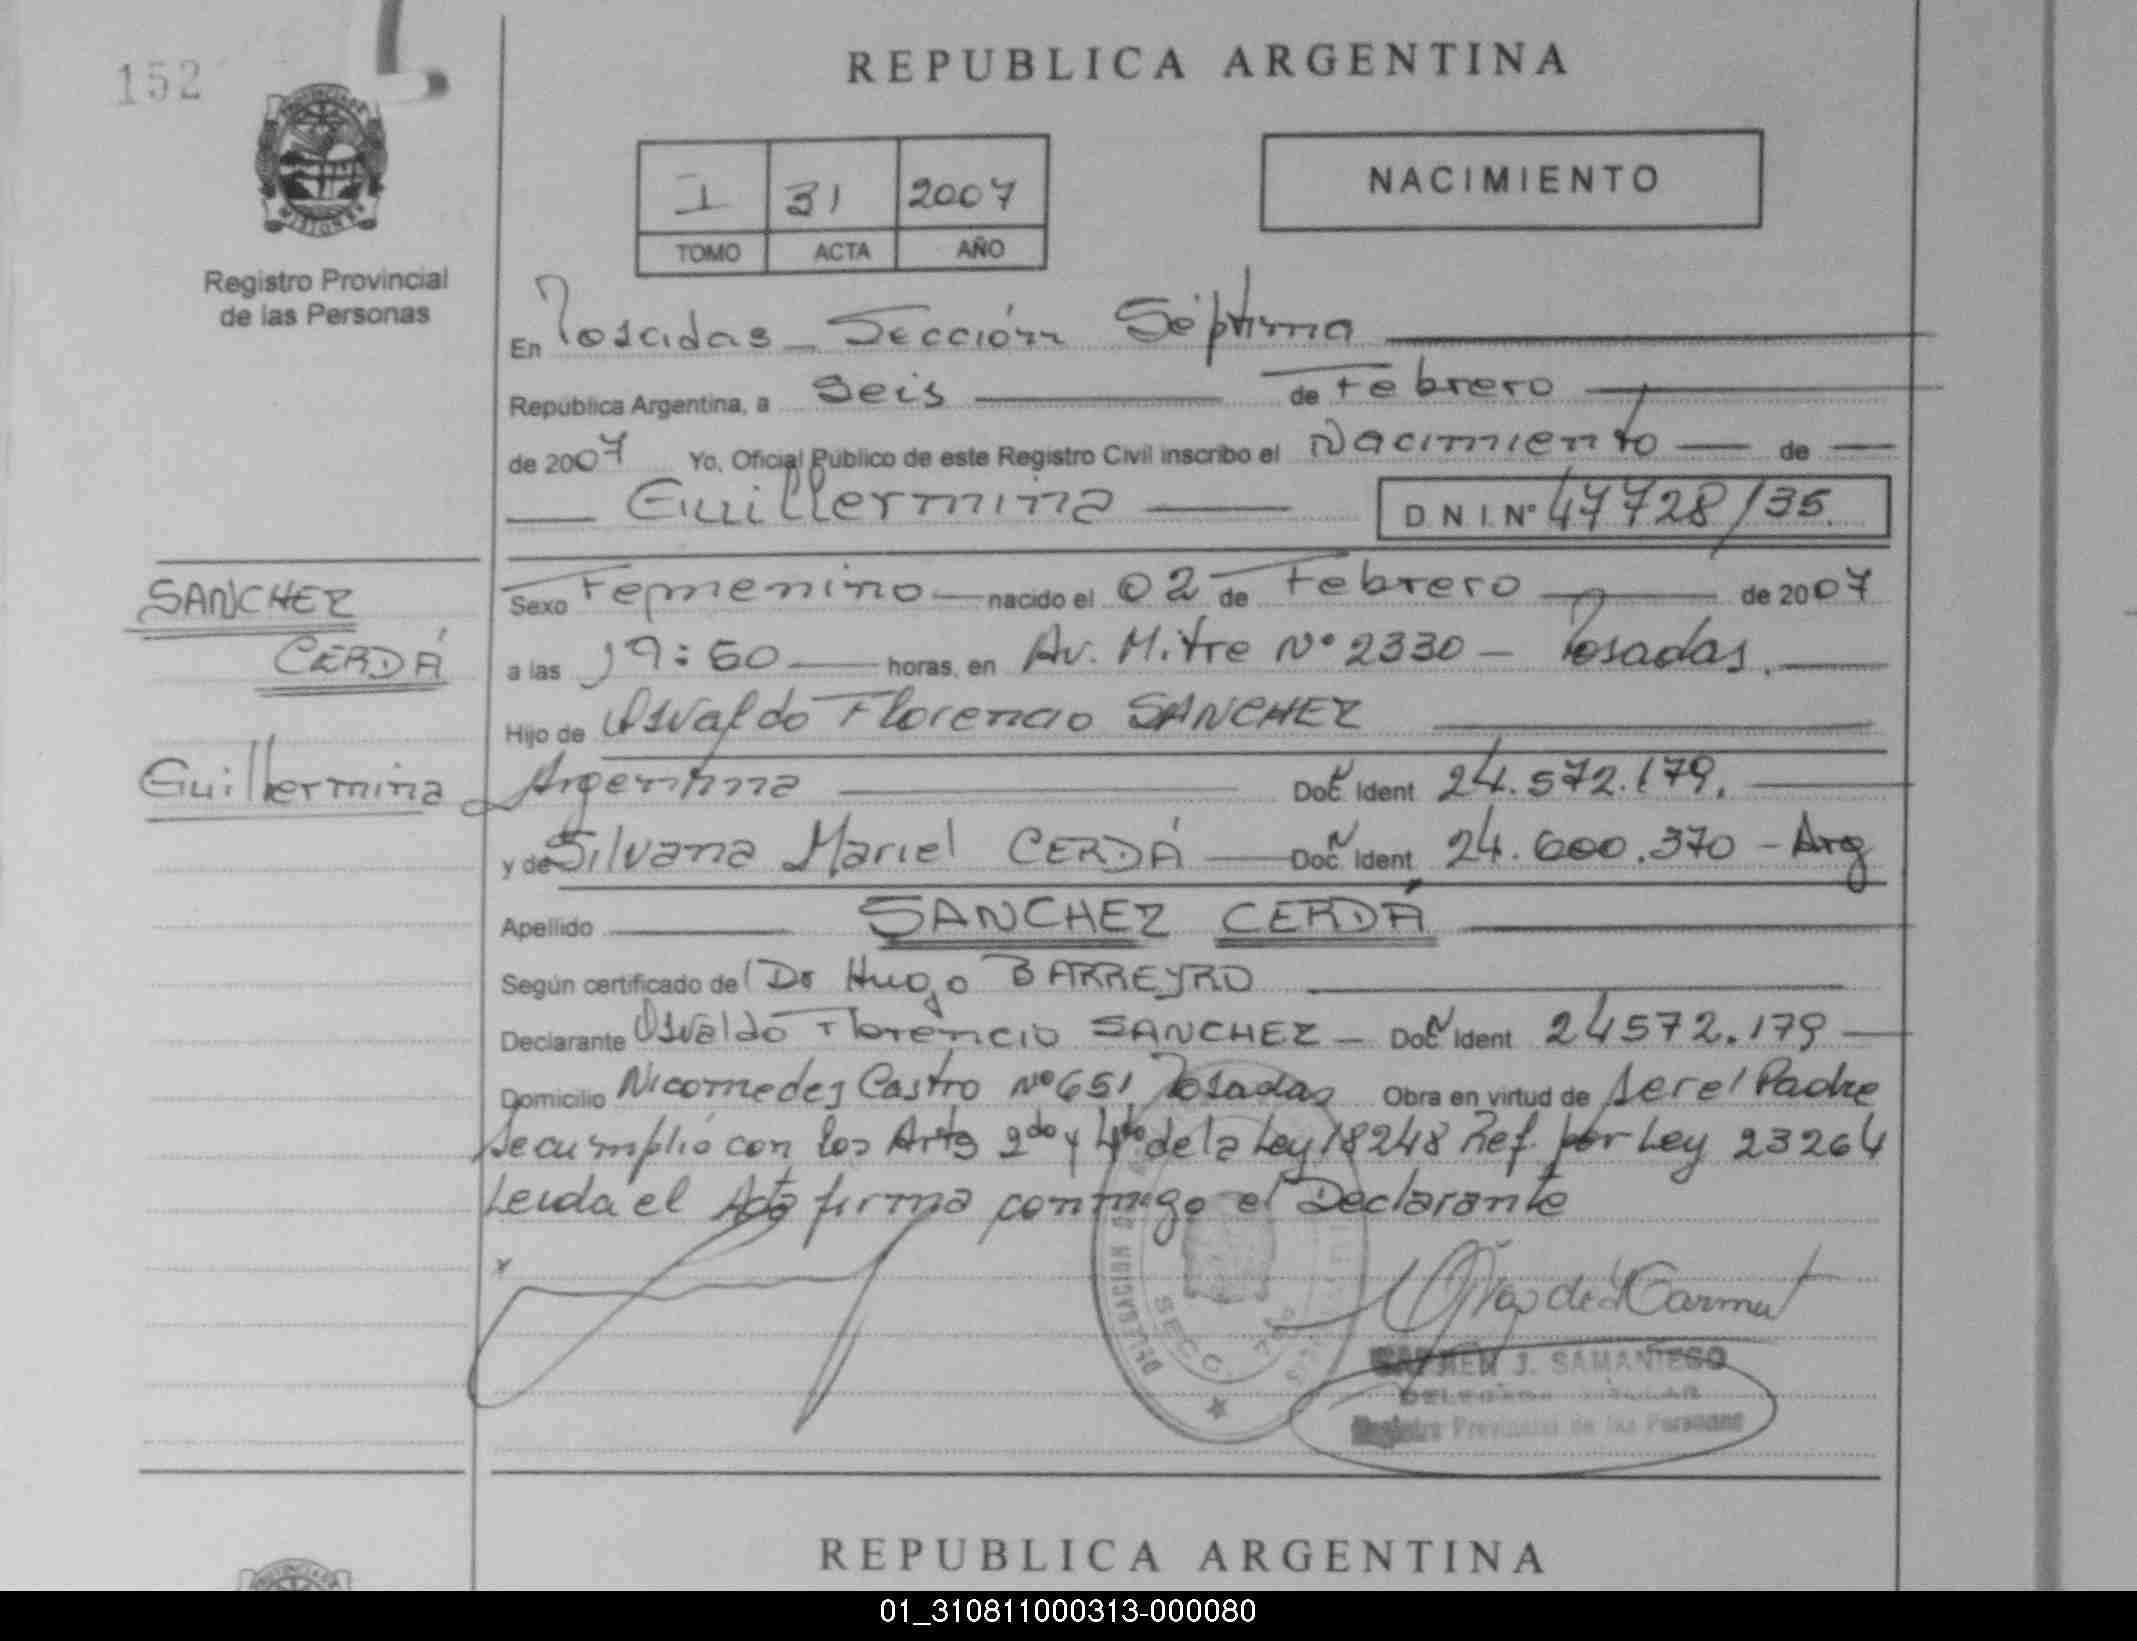 152
REPUBLICA ARGENTINA
I 31 2007
TOMO ACTA AÑO
NACIMIENTO
MISIONES
Registro Provincial
de las Personas
En Posadas - Sección Séptima
República Argentina, a Seis de Febrero
de 2007 Yo, Oficial Público de este Registro Civil inscribo el Nacimiento de
Guillermina D N I. Nº 47728/35.
SANCHEZ
CERDÁ
Guillermina
Sexo Femenino nacido el 02 de Febrero de 2007
a las horas, en Av. Mitre Nº 2330 - Posadas.
Hijo de Osvaldo Florencio SANCHEZ
Argentina Doc. Ident 24.572.179.
y de Silvana Mariel CERDÁ Doc. Ident. 24.600.370 - Arg
Apellido SANCHEZ CERDÁ
Según certificado del Dr Hugo BARREYRO
Declarante Osvaldo Florencio SANCHEZ - Doc Ident 24572.179
Domicilio Nicomedes Castro Nº 651 Posadas Obra en virtud de ser el Padre
Se cumplió con los Arts 2do y 4to de la Ley 18248 Ref. por Ley 23264
Leida el Acta firma conmigo el Declarante
SECC. 7a
CARMEN J. SAMANIEGO
Registro Provincial de las Personas
REPUBLICA ARGENTINA
01_310811000313-000080